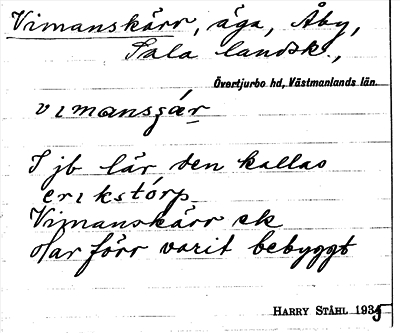 Vimanskärr, äga, Åby,
Sala landsk.,
Övertjurbo hd, Västmanlands län.
vımansɟär
I jb lär den kallas
erikstórp
Vimanskärr ek
Har förr varit bebyggt
HARRY STÅHL 1935